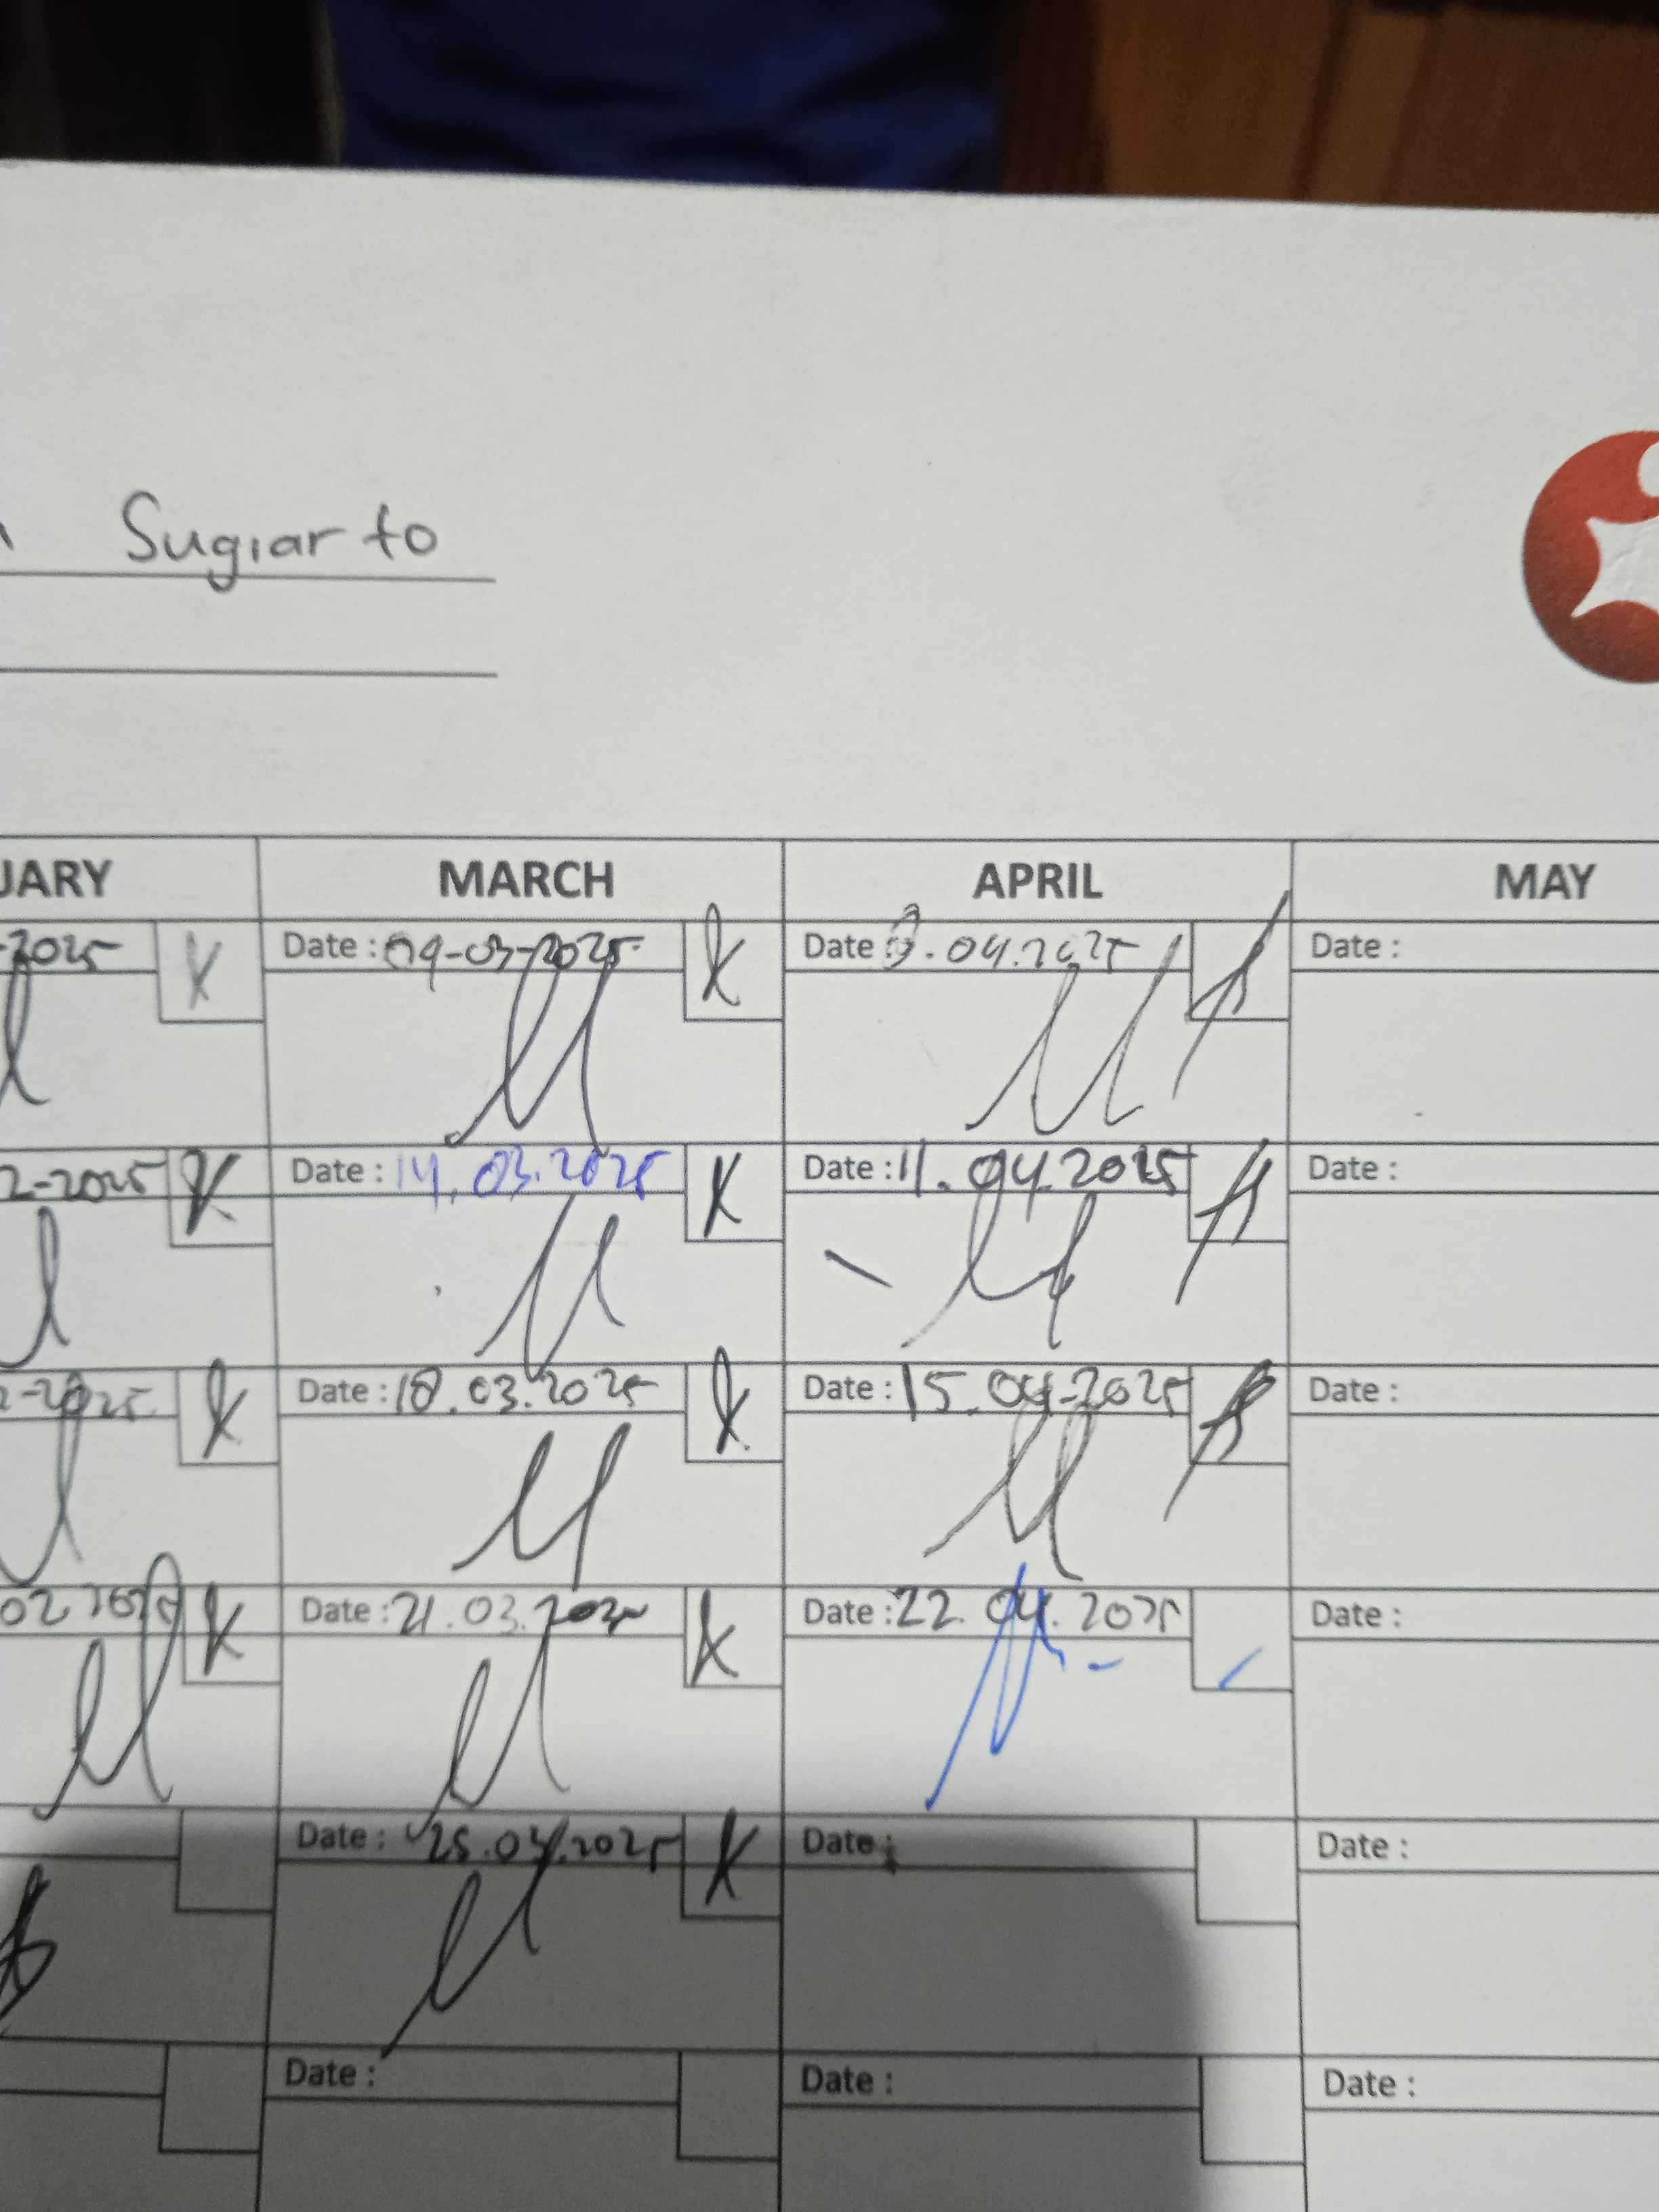 Sugiarto
UARY MARCH APRIL MAY
-2025 Date : 09-03-2025 Date 04.2025 Date :
2-2025 Date : 14.03.2025 Date : 11.04.2025 Date :
2-2025 Date : 18.03.2025 Date : 15.04-2025 Date :
02 Date : 21.03.2025 Date : 22.04.2025 Date :
Date : 25.03.2025 Date : Date :
Date : Date : Date :